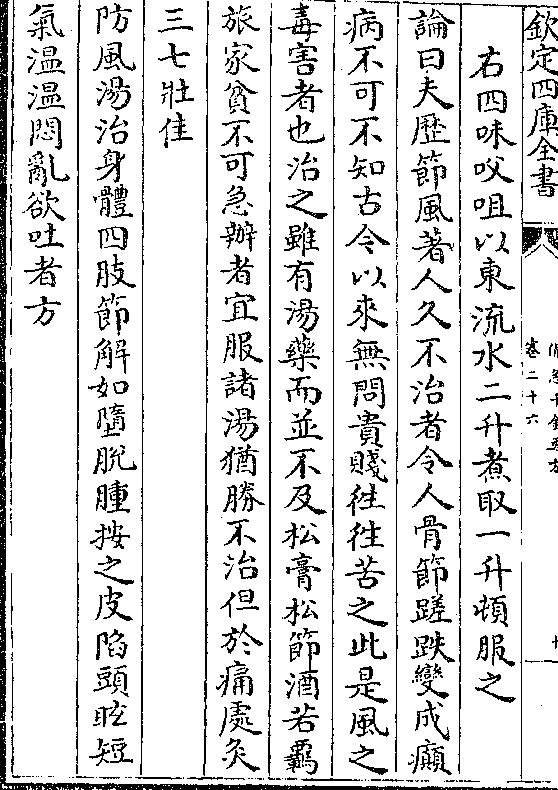 欽定四庫全書
卷二十六
右四味㕮咀以東流水二升煮取一升頓服之
論曰夫歷節風著人久不治者令人骨節蹉跌變成癲
病不可不知古今以來無問貴賤徃徃苦之此是風之
毒害者也治之雖有湯藥而並不及松膏松節酒若羈
旅家貧不可急辦者宜服諸湯猶勝不治但於痛處灸
三七壯佳
防風湯治身體四肢節解如墮脫腫按之皮陷頭眩短
氣溫溫悶亂欲吐者方